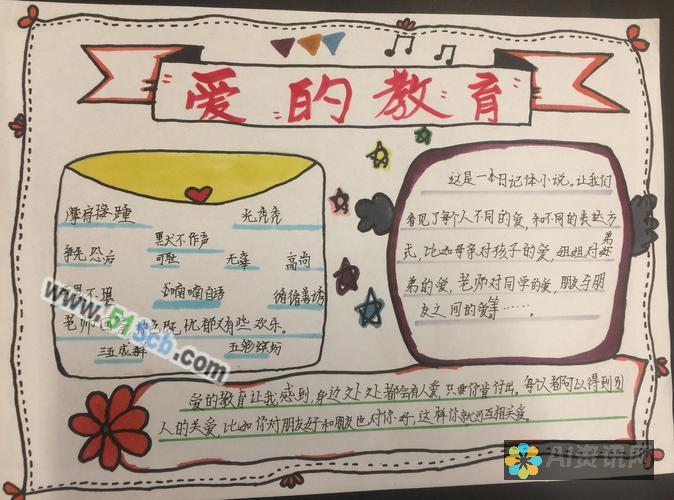 爱的教育
摩肩接踵 光秃秃
默不作声
争先恐后 可耻 无辜 高尚
喃喃自语 循循善诱
老师 既忧郁又有些欢乐。
三五成群 五彩缤纷
这是一本日记体小说。让我们
看见了每个人不同的爱，和不同的表达方
式，比如母亲对孩子的爱，姐姐对弟
弟的爱，老师对同学的爱，朋友与朋
友之间的爱等……。
爱的教育让我感到，身边处处都会有人爱，只要你肯付出。每次都可以得到别
人的关爱，比如你对朋友好和朋友也对你好，这样你就可互相关爱。
www.51scb.com
AI资讯网